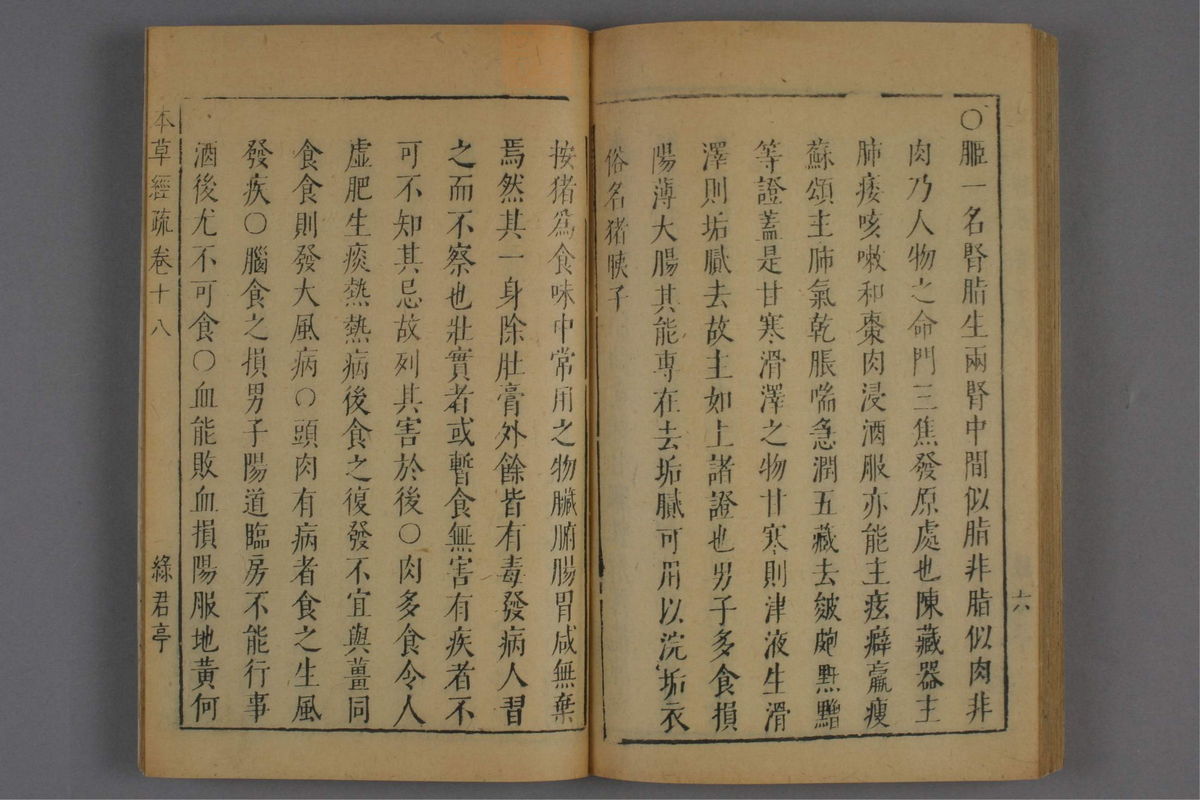 〇䐅一名腎脂生兩腎中間似脂非脂似肉非
肉乃人物之命門三焦發原處也陳藏器主
肺痿咳嗽和棗肉浸酒服亦能主痃癖羸瘦
蘇頌主肺氣乾脹喘急潤五藏去皴皰䵟黵
等證蓋是甘寒滑澤之物甘寒則津液生滑
澤則垢膩去故主如上諸證也男子多食損
陽薄大腸其能專在去垢膩可用以浣垢衣
俗名猪胰子
六
按猪爲食味中常用之物臟腑腸胃咸無棄
焉然其一身除肚膏外餘皆有毒發病人習
之而不察也壯實者或暫食無害有疾者不
可不知其忌故列其害於後〇肉多食令人
虛肥生痰熱熱病後食之復發不宜與薑同
食食則發大風病〇頭肉有病者食之生風
發疾〇腦食之損男子陽道臨房不能行事
酒後尤不可食〇血能敗血損陽服地黃何
本草經疏卷十八 綠君亭